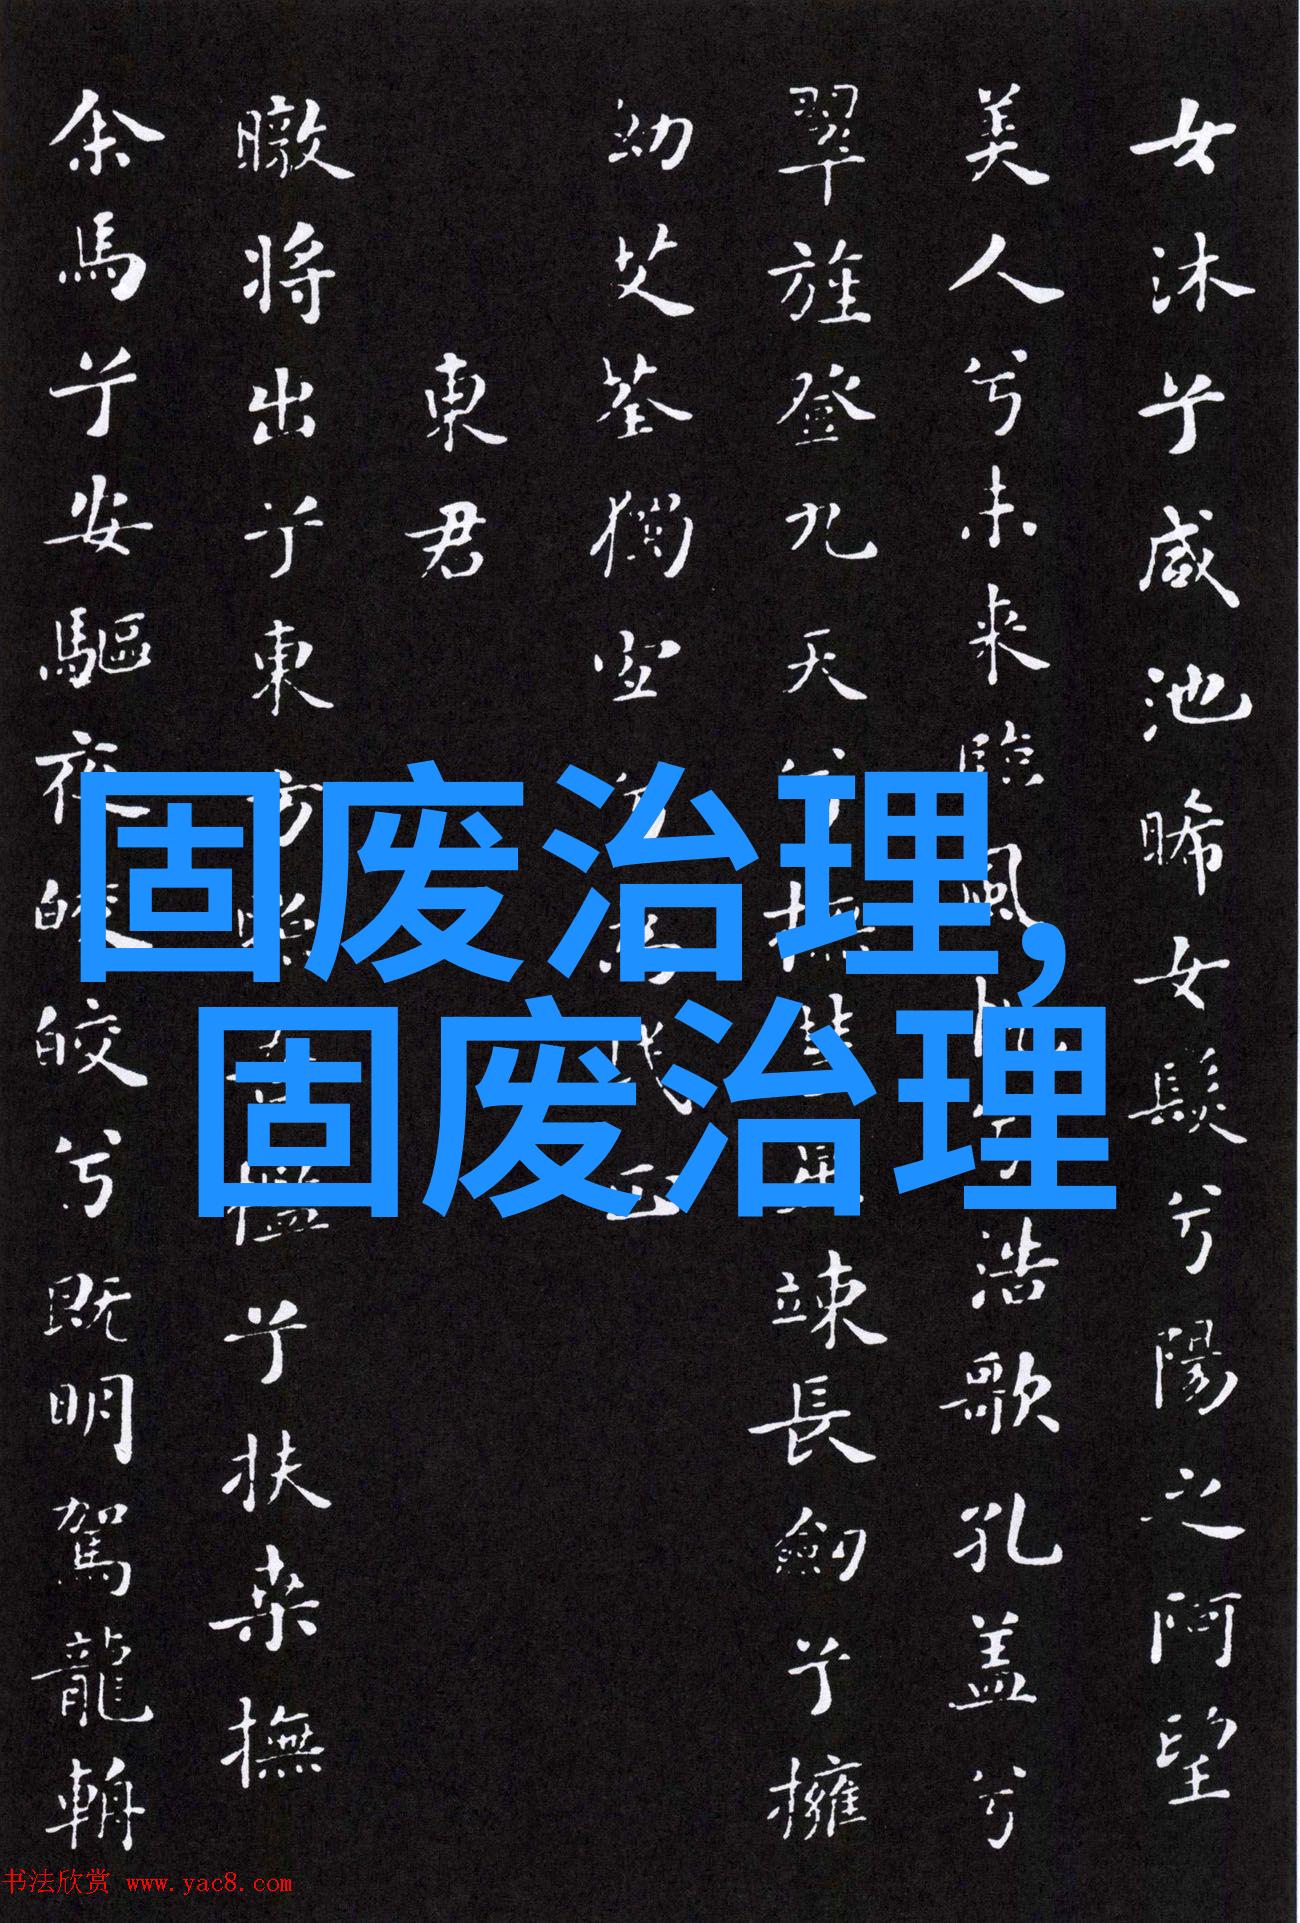 女沐兮咸池晞女髮兮陽之阿望
美人兮未来臨風怳兮浩歌孔盖兮
翠旌登九天兮撫彗星竦長劍兮擁
幼艾荃獨宜兮為民正
東君
暾將出兮東方照吾檻兮扶桑撫
余馬兮安驅夜皎皎兮既明駕龍輈
固废治理,
固废治理
书法欣赏 www.yac8.com